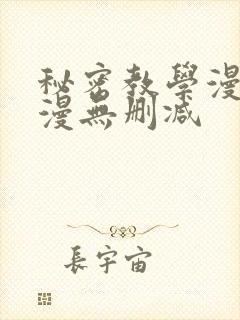 秘密教學漫
漫無刪减
長宇宙